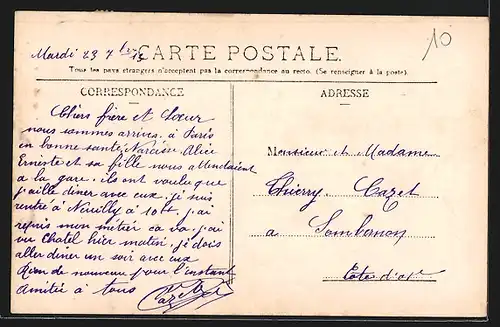 Mardi 23 7bre 13
CARTE POSTALE.
10
Tous les pays étrangers n'acceptent pas la correspondance au recto. (Se renseigner à la poste).
CORRESPONDANCE
Chers frère et Soeur
nous sommes arrivés à Paris
en bonne santé Narcisse Alice
Erniste et sa fille nous attendaient
a la gare. ils ont voulu que
j'aille diner avec eux. je suis
rentré à Neuilly à 10h. j'ai
repris mon métier ca va. j'ai
vu Chatel hier matin. je dois
aller diner un soir avec eux
Rien de nouveau pour l'instant
Amitié à tous
Cazet
ADRESSE
Monsieur et Madame
Thierry Cazet
a Sombernon
Côte d'or